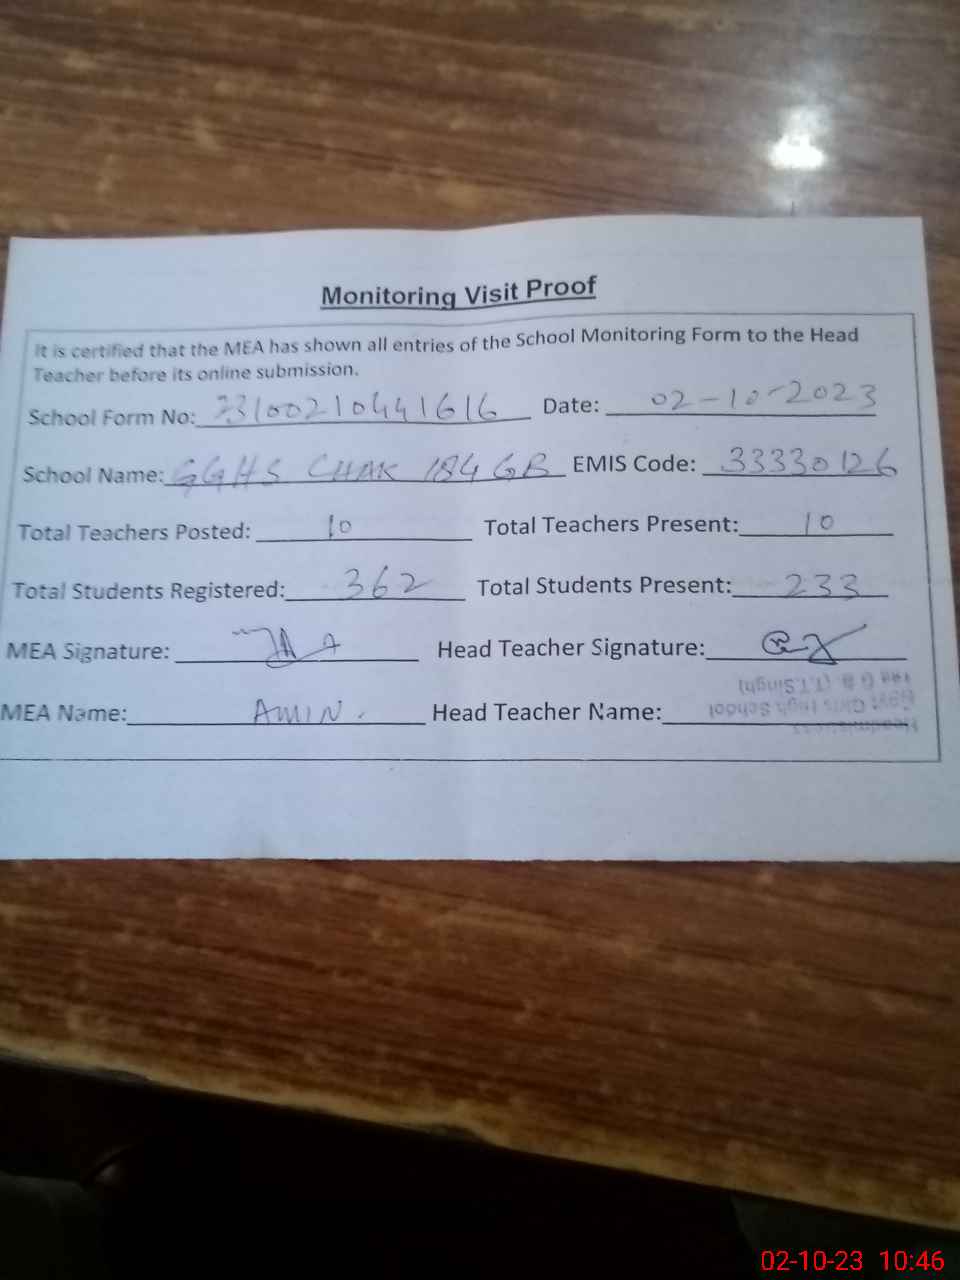 Monitoring Visit Proof
It is certified that the MEA has shown all entries of the School Monitoring Form to the Head
Teacher before its online submission.
School Form No: 23100210441616 Date: 02-10-2023
School Name: GGHS CHAK 184 GB EMIS Code: 33330126
Total Teachers Posted: 10 Total Teachers Present: 10
Total Students Registered: 362 Total Students Present: 233
MEA Signature: Head Teacher Signature:
MEA Name: AMIN. Head Teacher Name:
Headmistress
Govt Girls High School
184 G.B. (T.T.Singh)
02-10-23 10:46